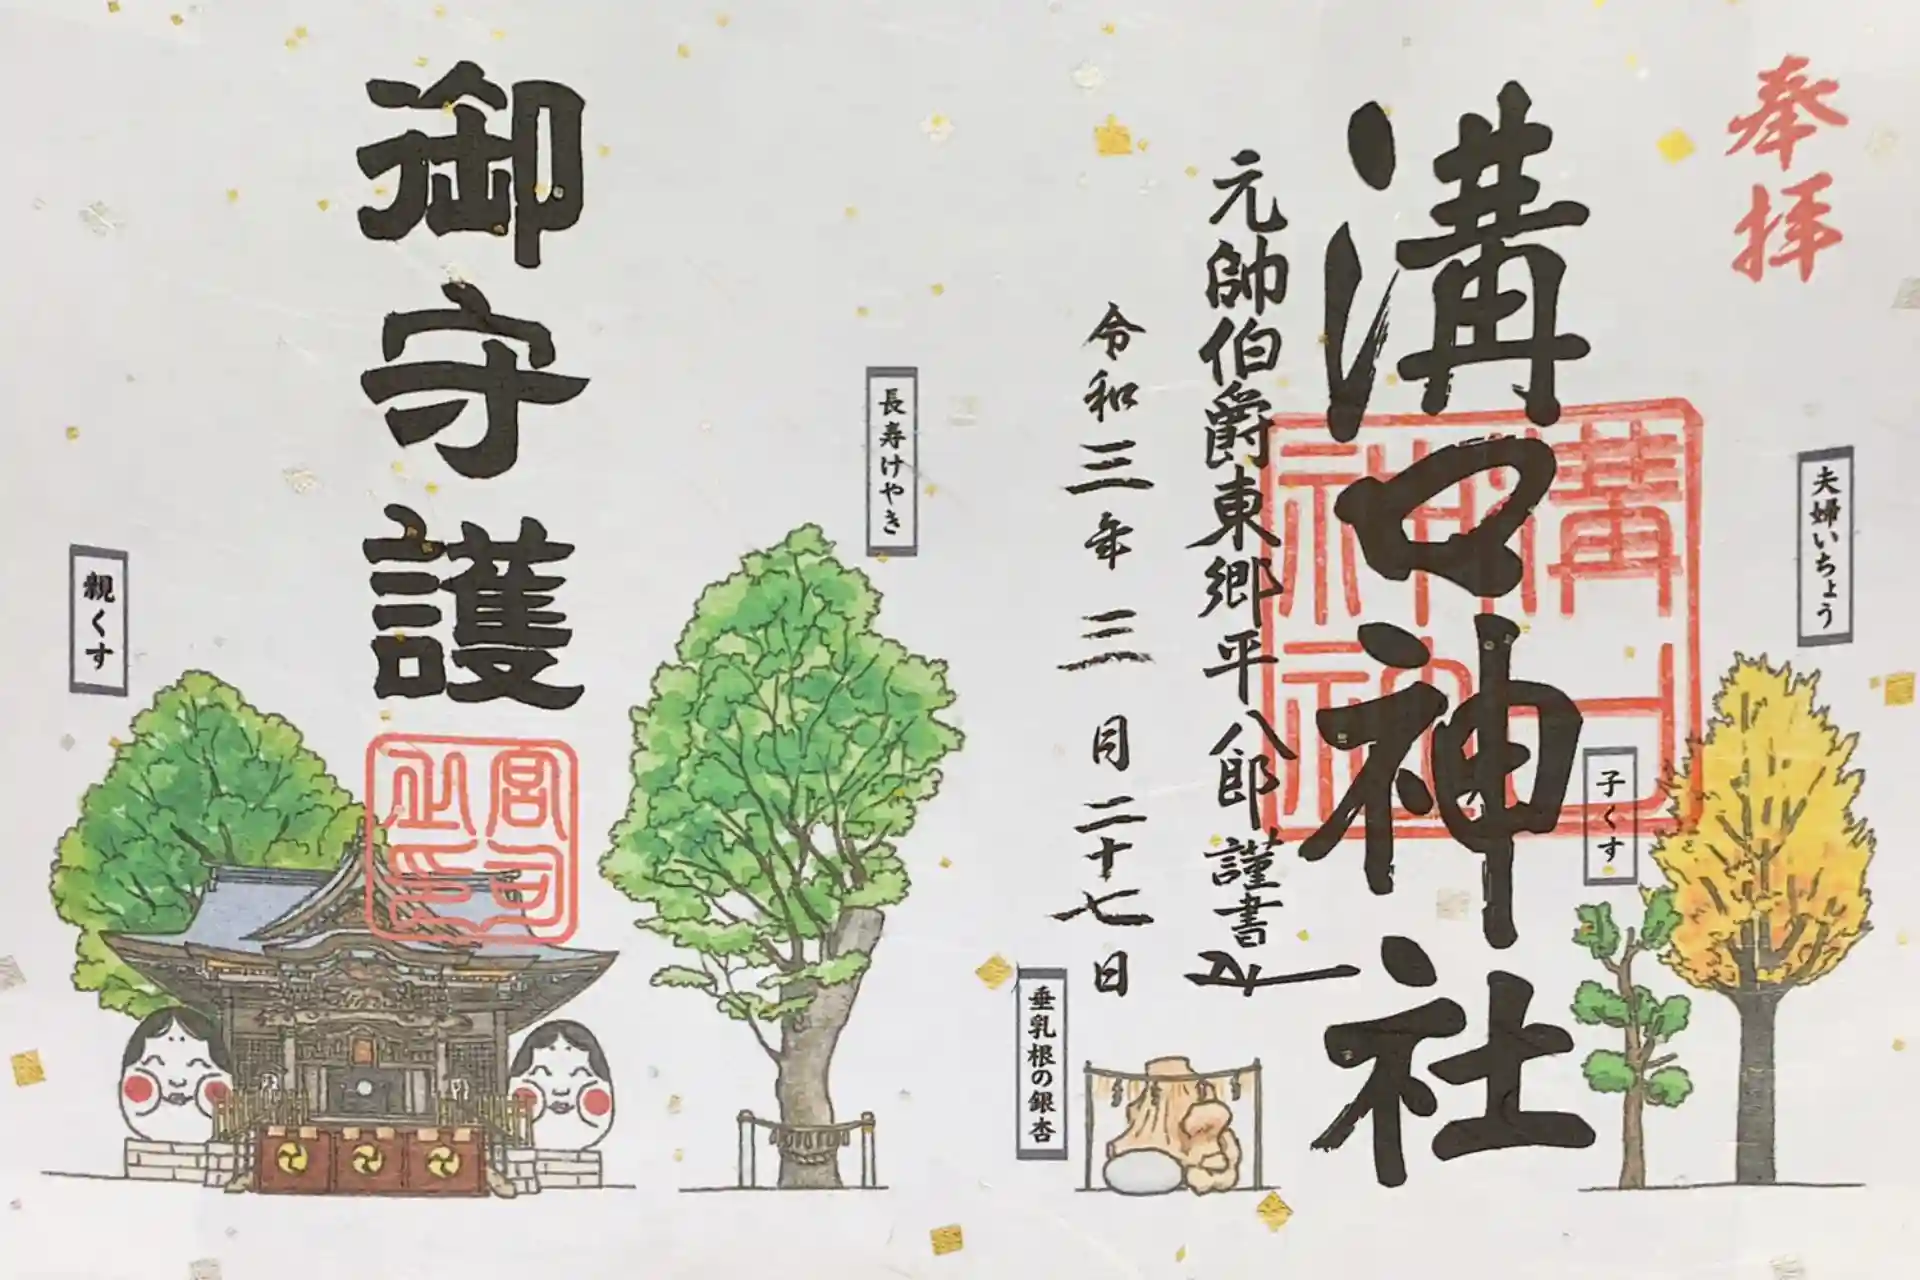 奉拝
夫婦いちょう
溝口神社
溝口神社
子くす
元帥伯爵東郷平八郎謹書
令和三年三月二十七日
垂乳根の銀杏
長寿けやき
御守護
宮司之印
親くす